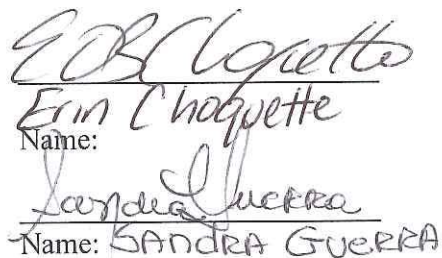 Erin Choquette
Name:
Sandra Guerra
Name: SANDRA GUERRA